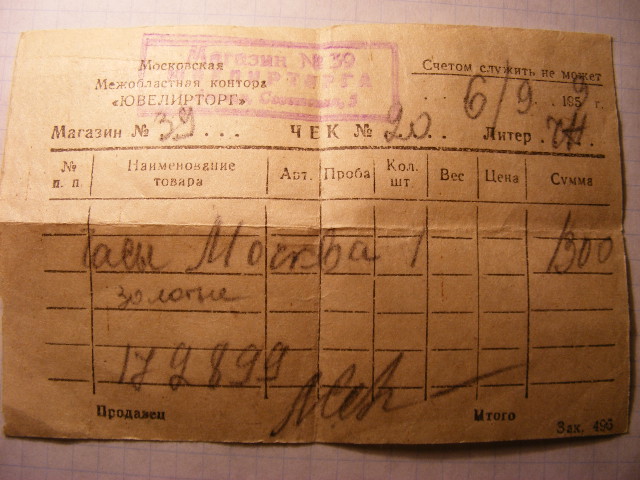 Магазин № 39
Московская
Межобластная контора
«ЮВЕЛИРТОРГ»
Счетом служить не может
6/9 1959 г.
Магазин № 39 ... ЧЕК № 20.. Литер .
№ п. п. Наименование товара Арт. Проба Кол. шт Вес Цена Сумма
Часы Москва 1 1300
золотые
179899
Продавец Итого
Зак. 495